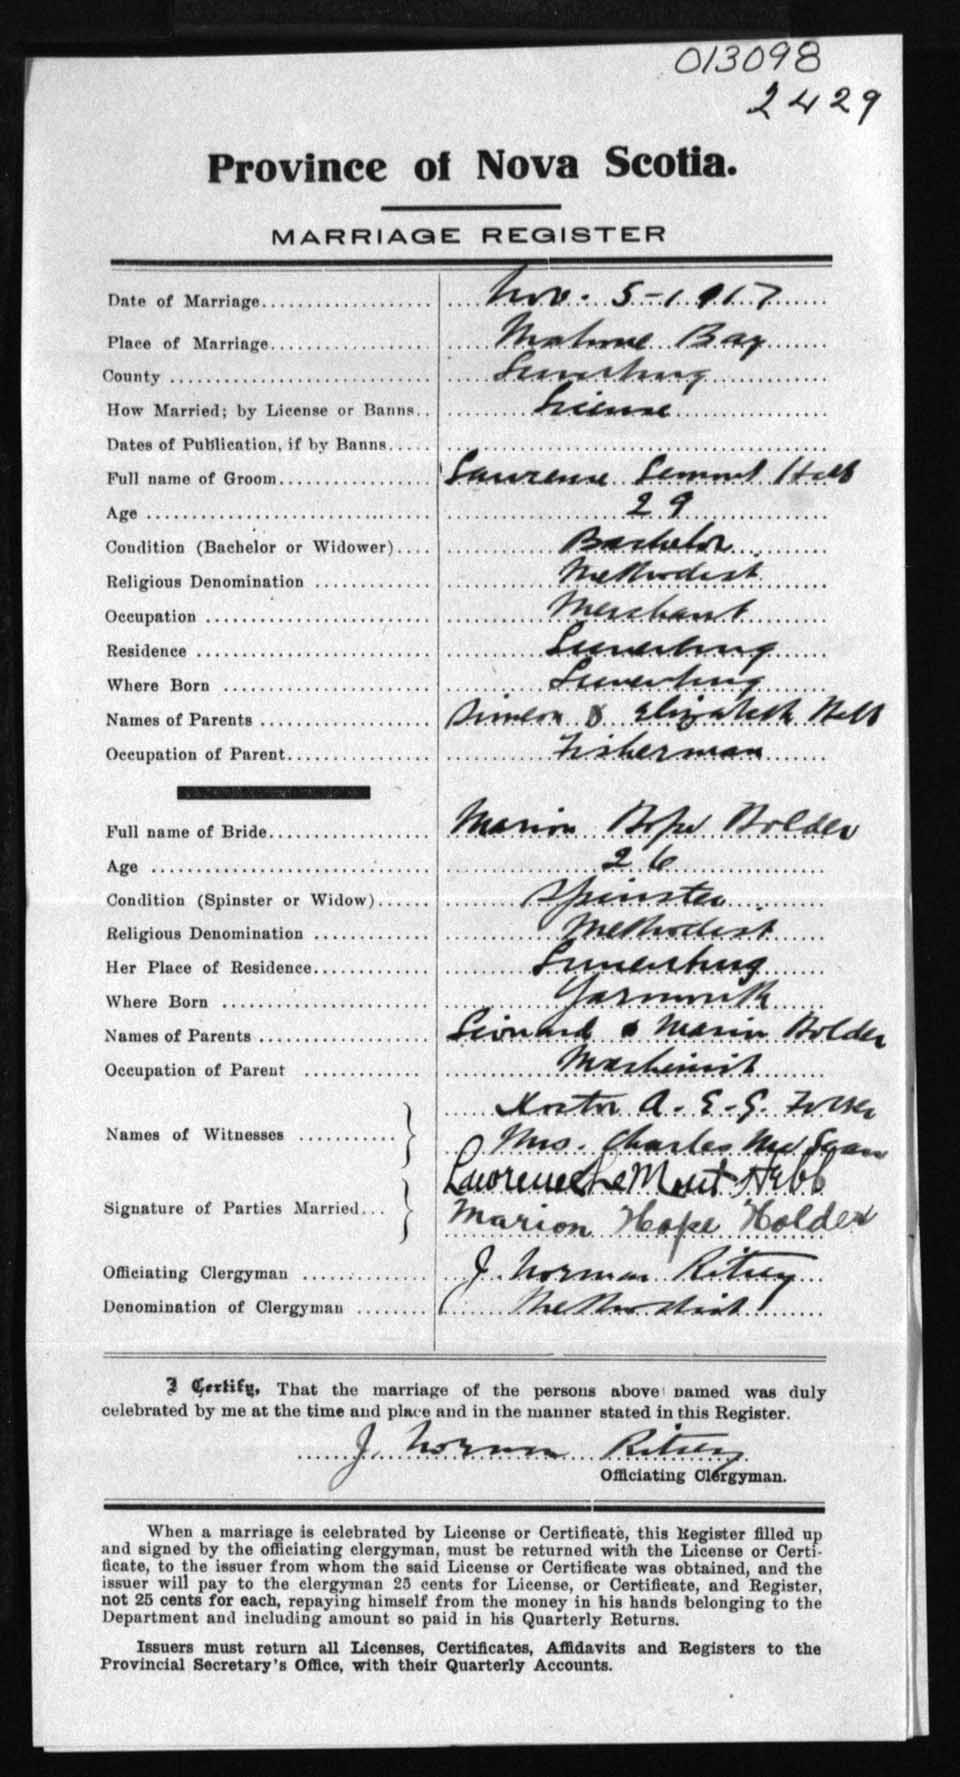 013098
2429
Province of Nova Scotia.
MARRIAGE REGISTER
Date of Marriage Nov. 5-1917
Place of Marriage Mahone Bay
County Lunenburg
How Married; by License or Banns License
Dates of Publication, if by Banns
Full name of Groom Lawrence Lemont Hebb
Age 29
Condition (Bachelor or Widower) Bachelor
Religious Denomination Methodist
Occupation Merchant
Residence Lunenburg
Where Born Lunenburg
Names of Parents Simeon & Elizabeth Hebb
Occupation of Parent Fisherman
Full name of Bride Marion Hope Holder
Age 26
Condition (Spinster or Widow) Spinster
Religious Denomination Methodist
Her Place of Residence Lunenburg
Where Born Yarmouth
Names of Parents Leonard & Marion Holder
Occupation of Parent Machinist
Names of Witnesses A. E. G.
Mrs. Charles
Signature of Parties Married Lawrence LeMont Hebb
Marion Hope Holder
Officiating Clergyman J. Norman Ritcey
Denomination of Clergyman Methodist
I Certify, That the marriage of the persons above named was duly
celebrated by me at the time and place and in the manner stated in this Register.
J. Norman Ritcey
Officiating Clergyman.
When a marriage is celebrated by License or Certificate, this Register filled up
and signed by the officiating clergyman, must be returned with the License or Certi-
ficate, to the issuer from whom the said License or Certificate was obtained, and the
issuer will pay to the clergyman 25 cents for License, or Certificate, and Register,
not 25 cents for each, repaying himself from the money in his hands belonging to the
Department and including amount so paid in his Quarterly Returns.
Issuers must return all Licenses, Certificates, Affidavits and Registers to the
Provincial Secretary's Office, with their Quarterly Accounts.